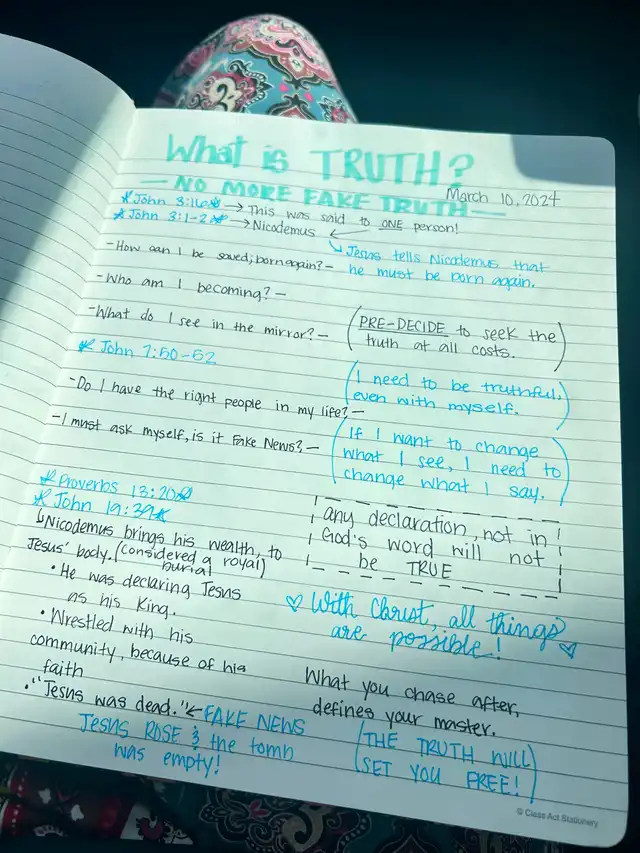 What is TRUTH?
— NO MORE FAKE TRUTH —
March 10, 2024
☆ John 3:16 ☆ → This was said to ONE person!
☆ John 3:1-2 ☆ → Nicodemus ←
↳ Jesus tells Nicodemus that
he must be born again.
- How can I be saved; born again? -
- Who am I becoming? -
- What do I see in the mirror? -
(PRE-DECIDE to seek the
truth at all costs.)
☆ John 7:50-52
(I need to be truthful,
even with myself.)
- Do I have the right people in my life? -
- I must ask myself, is it Fake News? -
(If I want to change
what I see, I need to
change what I say.)
☆ Proverbs 13:20 ☆
☆ John 19:39 ☆
↳ Nicodemus brings his wealth, to
Jesus' body. (considered a royal)
burial
• He was declaring Jesus
as his King.
• Wrestled with his
community, because of his
faith
• "Jesus was dead." ← FAKE NEWS
Jesus ROSE & the tomb
was empty!
any declaration, not in
God's word will not
be TRUE
♡ With Christ, all things
are possible! ♡
What you chase after,
defines your master.
(THE TRUTH WILL
SET YOU FREE!)
© Class Act Stationery